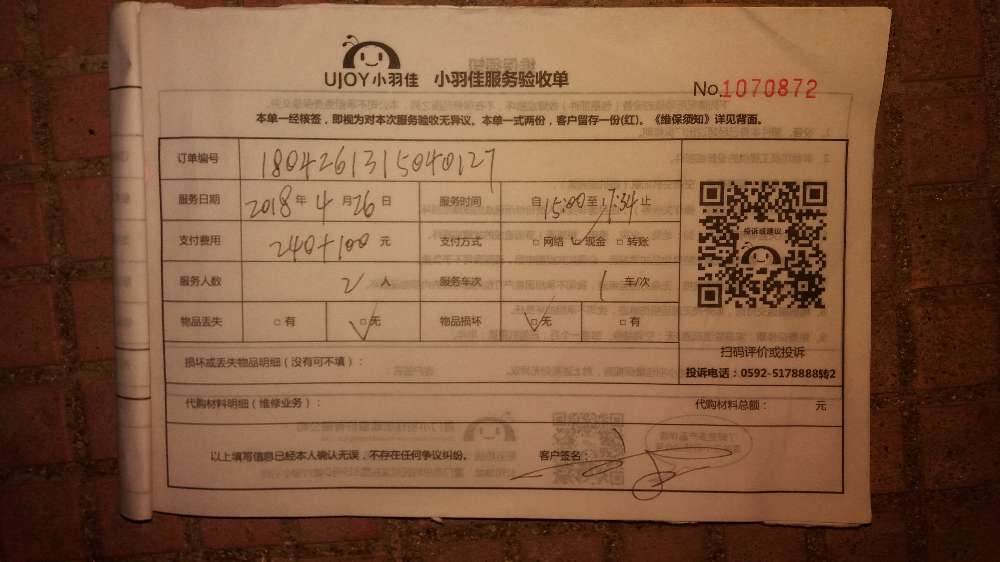 UJOY小羽佳 小羽佳服务验收单
No.1070872
本单一经核签，即视为对本次服务验收无异议。本单一式两份，客户留存一份(红)。《维保须知》详见背面。
订单编号 1804261315040127
服务日期 2018年4月26日 服务时间 自15:00至17:34止
支付费用 240+100元 支付方式 □网络 □现金 □转账
服务人数 2人 服务车次 1车/次
物品丢失 □有 □无 物品损坏 □无 □有
投诉或建议
扫码评价或投诉
投诉电话：0592-5178888转2
损坏或丢失物品明细（没有可不填）：
代购材料明细（维修业务）： 代购材料总额： 元
以上填写信息已经本人确认无误，不存在任何争议纠纷。 客户签名：